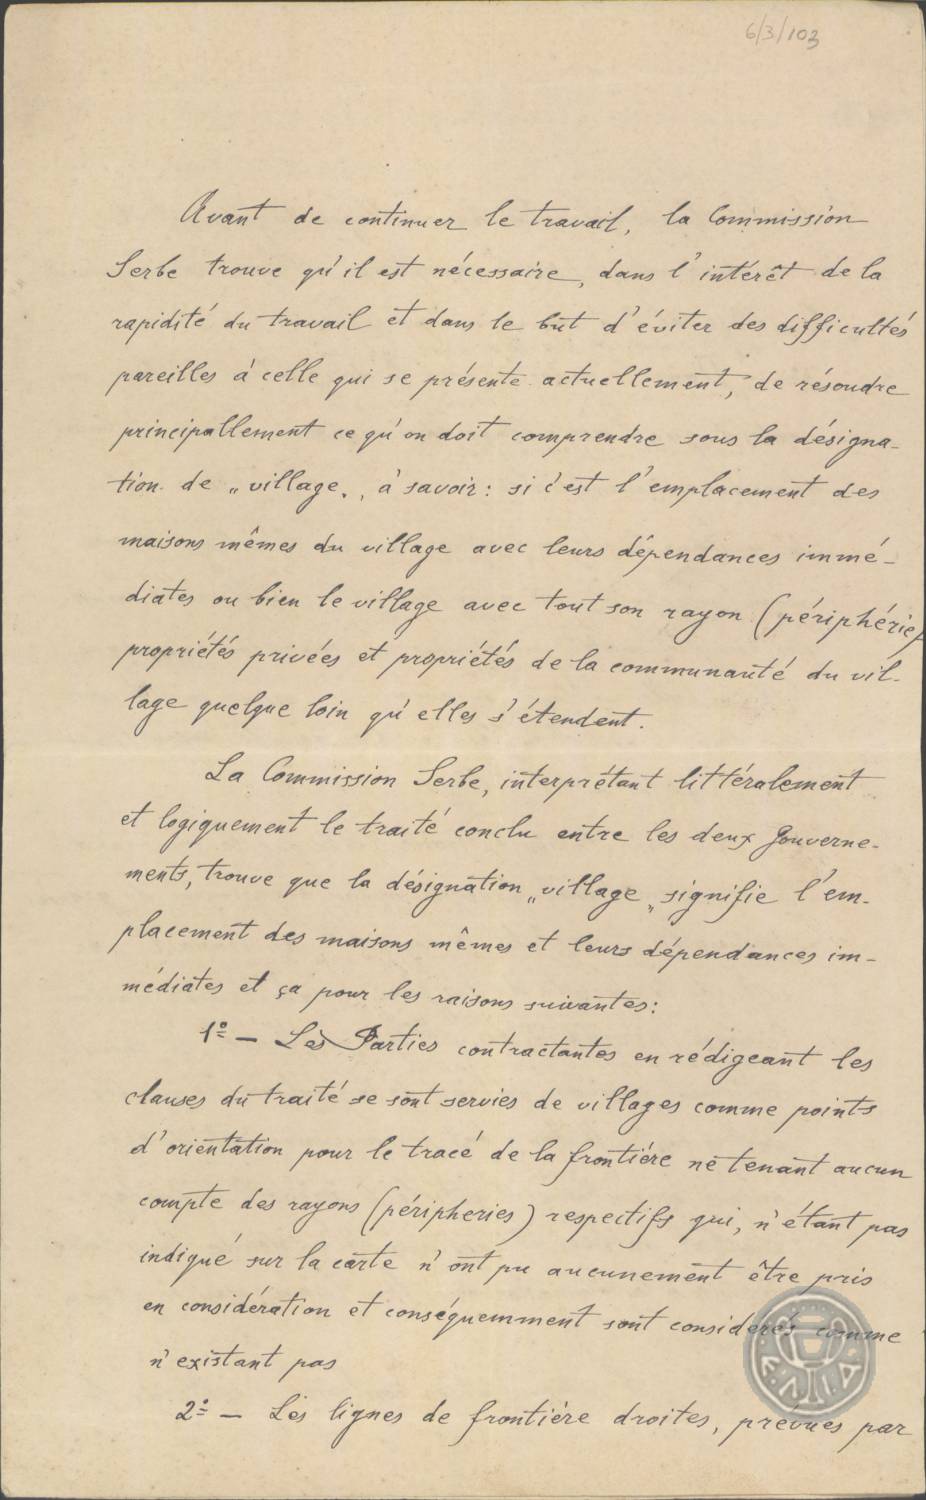 6/3/103
Avant de continuer le travail, la Commission
Serbe trouve qu'il est nécessaire, dans l'intérêt de la
rapidité du travail et dans le but d'éviter des difficultés
pareilles à celle qui se présente actuellement, de résoudre
principallement ce qu'on doit comprendre sous la désigna-
tion de „village„, à savoir: si c'est l'emplacement des
maisons mêmes du village avec leurs dépendances immé-
diates ou bien le village avec tout son rayon (périphérie)
propriétés privées et propriétés de la communauté du vil-
lage quelque loin qu'elles s'étendent.
La Commission Serbe, interprétant littéralement
et logiquement le traité conclu entre les deux Gouverne-
ments, trouve que la désignation „village„ signifie l'em-
placement des maisons mêmes et leurs dépendances im-
médiates et ça pour les raisons suivantes:
1º — Les Parties contractantes en rédigeant les
clauses du traité se sont servies de villages comme points
d'orientation pour le tracé de la frontière ne tenant aucun
compte des rayons (péripheries) respectifs qui, n'étant pas
indiqué sur la carte n'ont pu aucunement être pris
en considération et conséquemment sont considerés comme
n'existant pas
2º — Les lignes de frontière droites, prévues par
Ε.Λ.Ι.Α